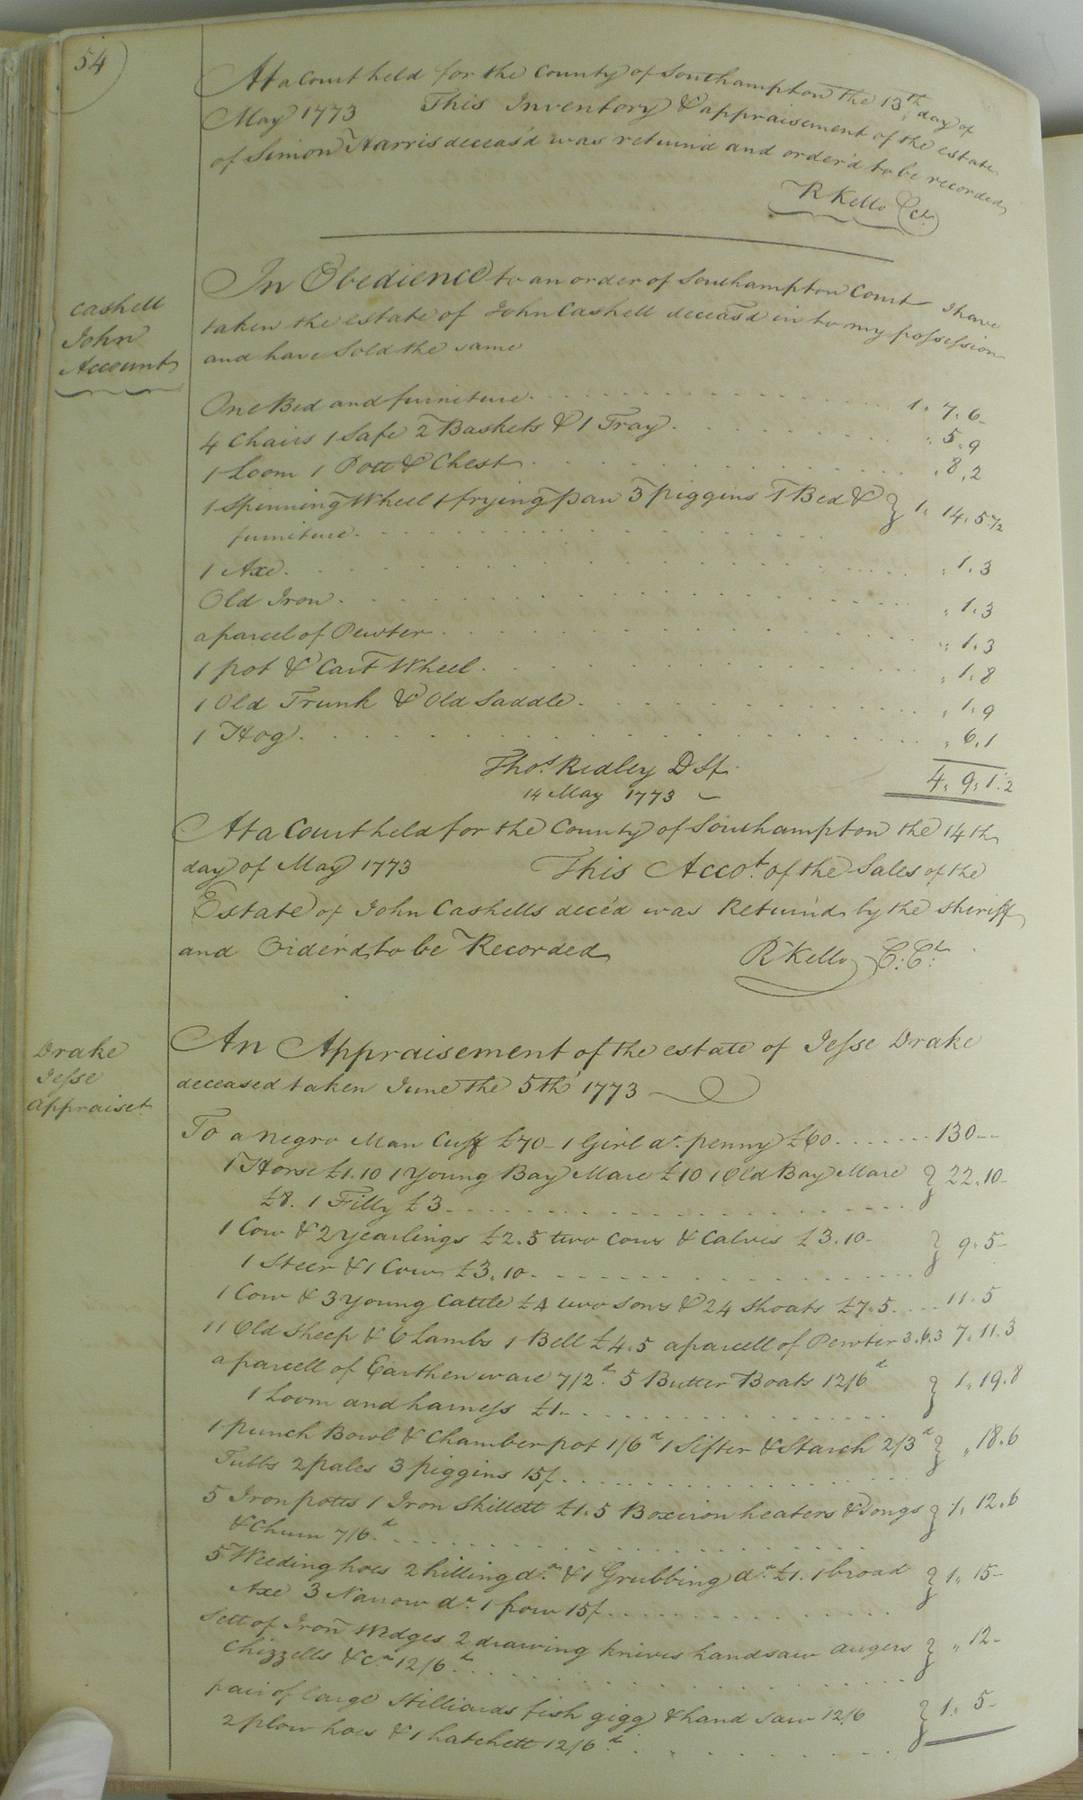 54
At a Court held for the County of Southampton the 13th. day of
May 1773 This Inventory & appraisement of the estate
of Simon Harris deceas'd was return'd and order'd to be recorded
R Kello Ct.
Cashell
John
Account
In Obedience to an order of Southampton Court I have
taken the estate of John Cashell deceas'd in to my possession
and have Sold the same
One Bed and furniture 1. 7. 6
4 Chairs 1 Safe 2 Baskets & 1 Tray . 5. 9
1 Loom 1 Pott & Chest . 8. 2
1 Spinning Wheel 1 frying pan 3 piggins 1 Bed & } 1. 14. 5 1/2
furniture
1 Axe . 1. 3
Old Iron . 1. 3
a parcel of Pewter . 1. 3
1 pot & Cart Wheel . 1. 8
1 Old Trunk & Old Saddle . 1. 9
1 Hog . 6. 1
Thos. Ridley D Sf. 4. 9. 1 1/2
14 May 1773
At a Court held for the County of Southampton the 14th
day of May 1773 This Accot. of the Sales of the
Estate of John Cashells dece'd was Return'd by the sheriff
and Order'd to be Recorded R Kello C: Ct.
Drake
Jesse
appraiset.
An Appraisement of the estate of Jesse Drake
deceased taken June the 5th 1773
To a negro Man Cuff £70 1 Girl do. penny £60 130
1 Horse £1.10 1 Young Bay Mare £10 1 Old Bay Mare } 22. 10
£8. 1 Filly £3
1 Cow & 2 yearlings £2.5 two Cows & Calves £3.10 } 9. 5
1 Steer & 1 Cow £3.10
1 Cow & 3 young Cattle £4 two Sows & 24 Shoats £7.5 11. 5
11 Old Sheep & 6 Lambs 1 Bell £4.5 a parcell of Pewter 3.6.3 7. 11. 3
a parcell of Earthen ware 7/2d. 5 Butter Boats 12/6d } 1. 19. 8
1 Loom and harness £1
1 punch Bowl & Chamber pot 1/6d 1 Sifter & Starch 2/3d } . 18. 6
Tubbs 2 pales 3 piggins 15/
5 Iron potts 1 Iron Skillett £1.5 Box iron heaters & Tongs } 1. 12. 6
& Churn 7/6d
5 Weeding hoes 2 hilling do. & 1 Grubbing do. £1. 1 broad } 1. 15
Axe 3 Narrow do. 1 frow 15/
Sett of Iron Wedges 2 drawing knives handsaw augers } . 12
Chizzells &c 12/6d
pair of large Stilliards fish gigg & hand saw 12/6 } 1. 5
2 plow hoes & 1 hatchett 12/6d